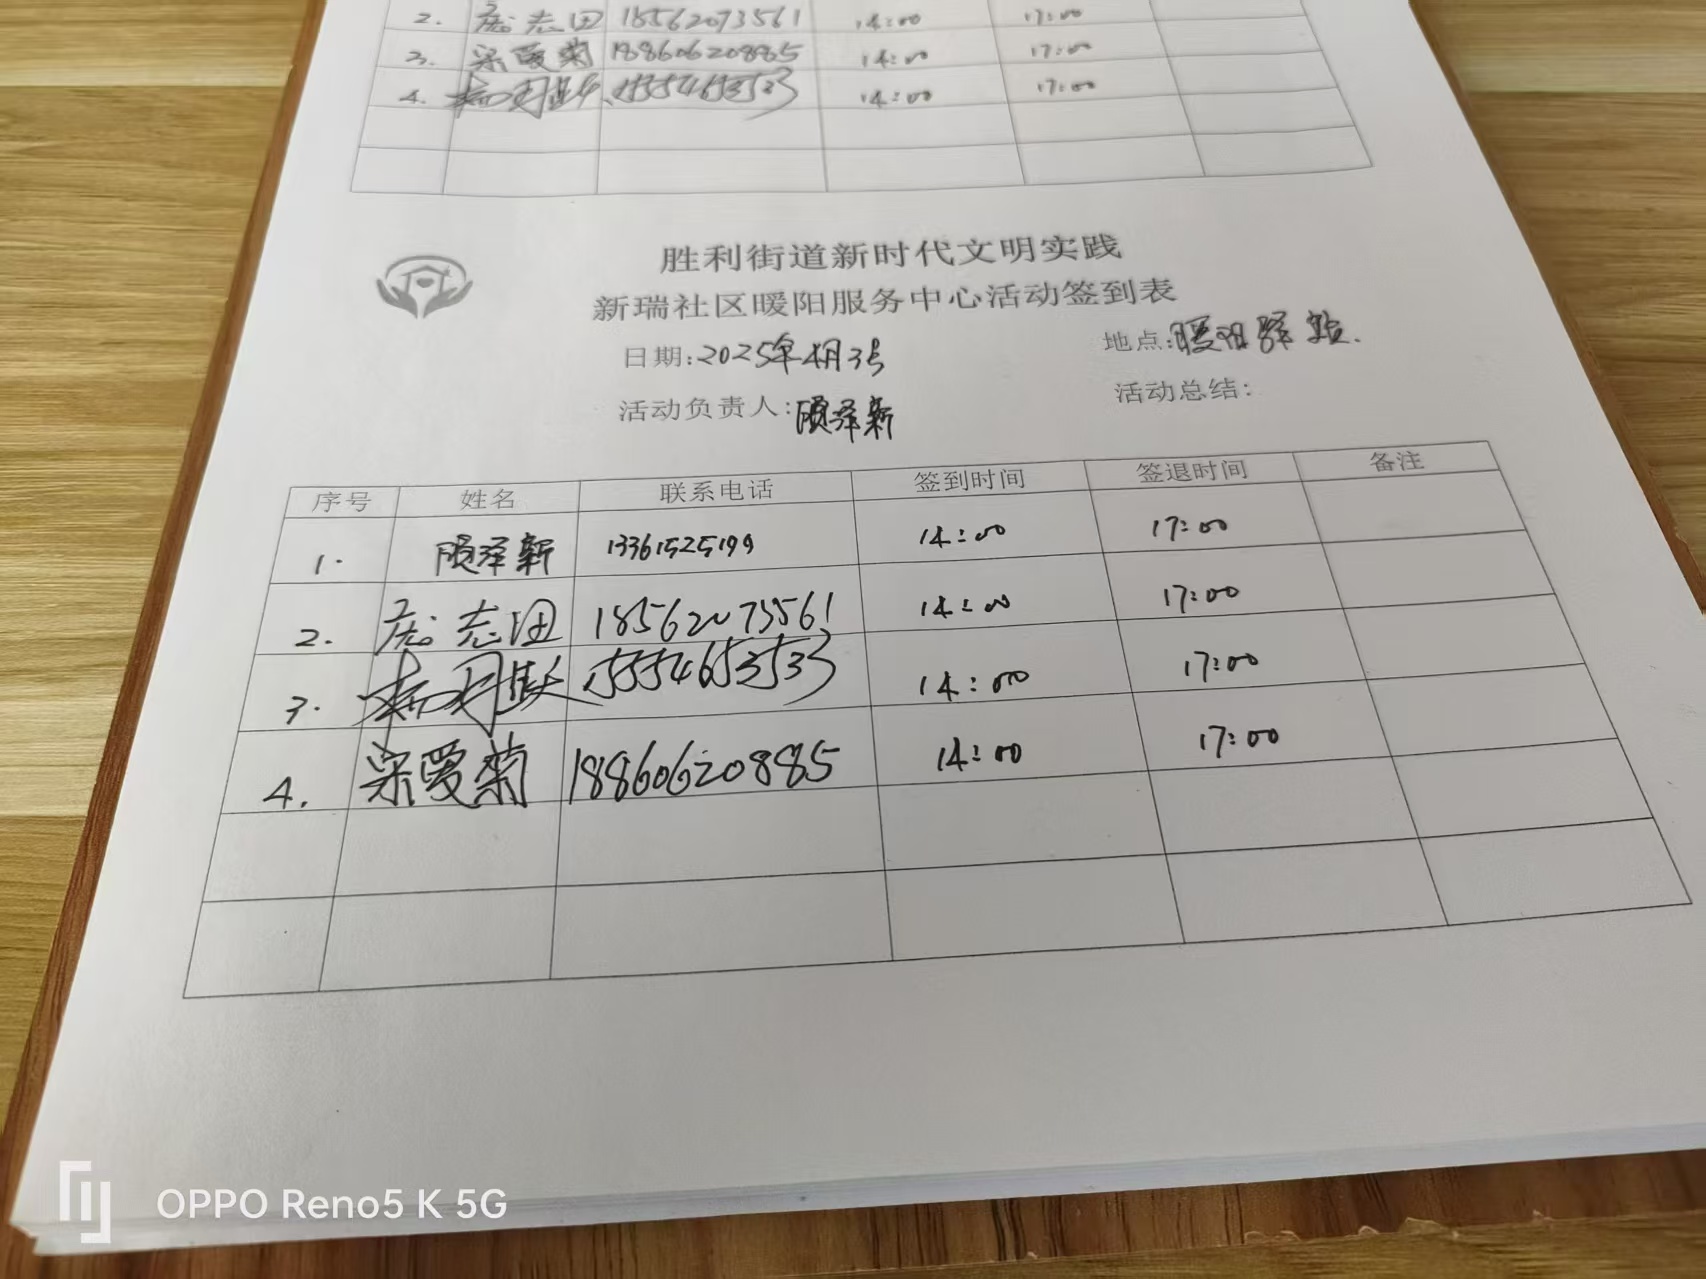 2. 庞志田 18562073561 14:00 17:00
3. 宋爱菊 18860620885 14:00 17:00
4. 14:00 17:00
胜利街道新时代文明实践
新瑞社区暖阳服务中心活动签到表
日期:2025年4月3号 地点:暖阳驿站.
活动负责人:顾泽新 活动总结:
序号 姓名 联系电话 签到时间 签退时间 备注
1. 顾泽新 13361525199 14:00 17:00
2. 庞志田 18562073561 14:00 17:00
3. 15554653533 14:00 17:00
4. 宋爱菊 18860620885 14:00 17:00
OPPO Reno5 K 5G